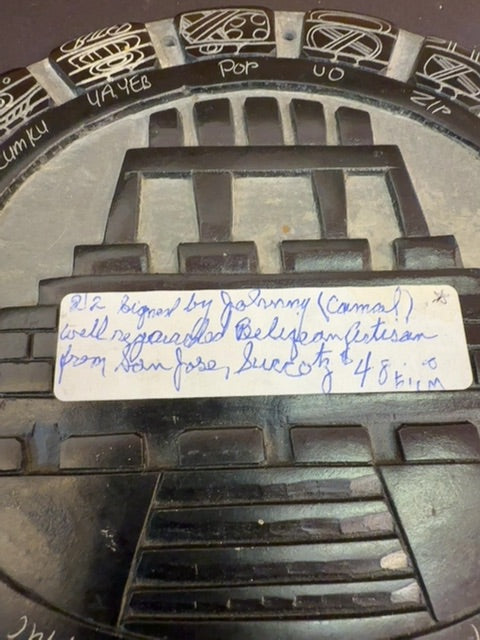 CUMKU
UAYEB
POP
UO
ZIP
22 Signed by Johnny (Camal) *
well regarded Belizean Artisan
from San Jose, Succotz $48.00
FIRM